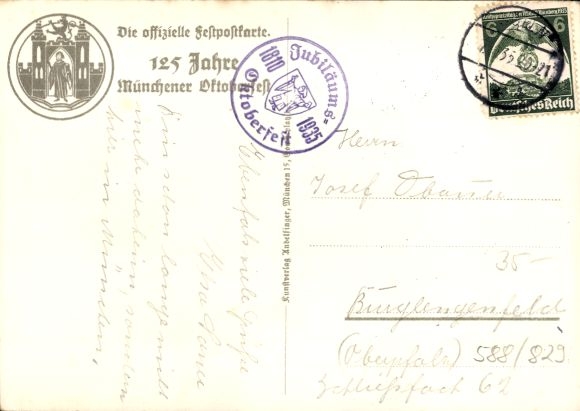 Die offizielle Festpostkarte.
125 Jahre
Münchener Oktoberfest
Jubiläums-
Oktoberfest
1810
1935
6
6
Deutsches Reich
Kunstverlag Andelfinger, München 15,
Bin schon lange nicht
mehr daheim, sondern
hier in München,
Ebenfalls viele Grüße
Herrn
Josef Obauer
35-
Burglengenfeld
(Oberpfalz) 588/829
Schließfach 62